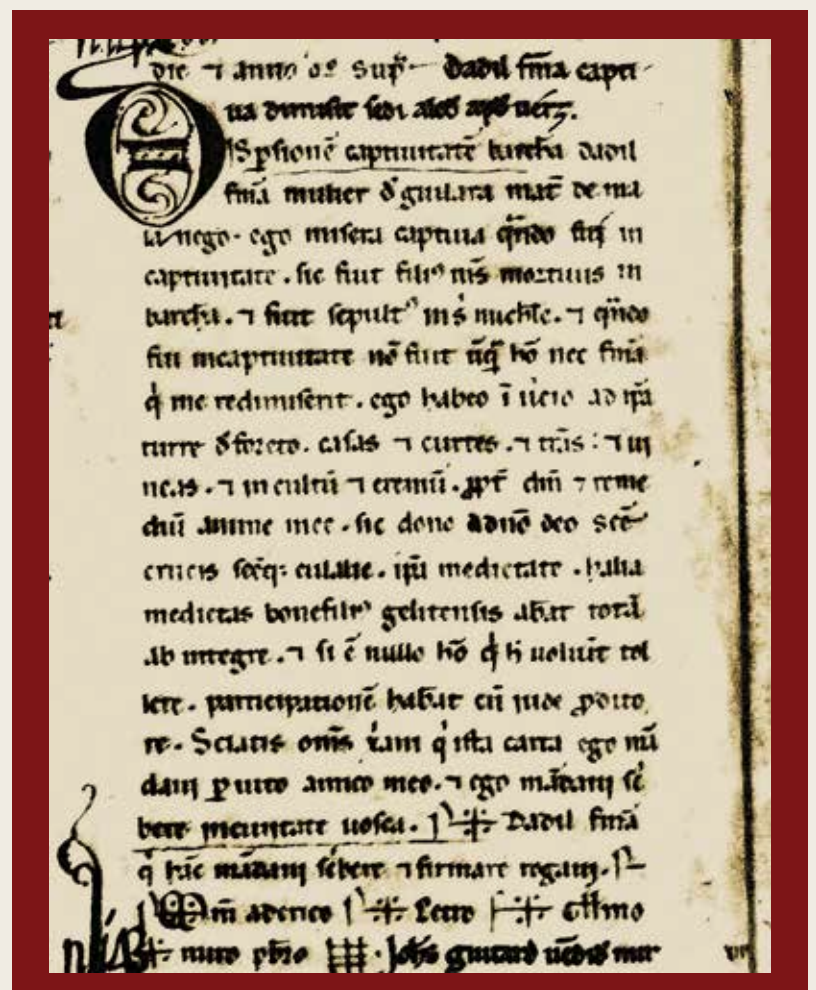 die ⁊ anno qº supͣ Dadil fm̃a capti
ua dimisit sedi
captiuitatẽ barcha dadil
fm̃a mulier đ guilara mat̃ de ma
la nego. ego misera captiua qñdo fui in
captiuitate. sic fiut filiꝰ m̃s mortuus in
barcha. ⁊ fiut sepultꝰ ⁊ qñdo
fui incaptiuitate nõ fiut hõ nec fm̃a
q̇ me redimiserit. ego habeo ĩ ad ip̃a
turre đ foreto. casas ⁊ curtes. ⁊ tr̃as: ⁊ ui
neas. ⁊ incultũ ⁊ eremũ. ꝓpt̃ dm̃ ⁊ reme
diũ anime mee. sic dono adño deo sc̃e
crucis sc̃eq; eulalie. ip̃a medietate. halia
medietas bonefiliꝰ gelitensis ab̃at totã
ab integre. ⁊ si ẽ nullo hõ q̇ h̊ uoluit tol
lere. participationẽ hab̃at cũ iude ꝓdito
re. Sciatis om̃s q̇ ista carta ego mã
daui amico meo. ⁊ ego mãdaui sc̃i
bere inciuitate uosca. Dadil fm̃a
q̇ hãc mãdaui sc̃ibere ⁊ firmare rogaui.
aderico
nuto pb̃ro Joh̃s guitard